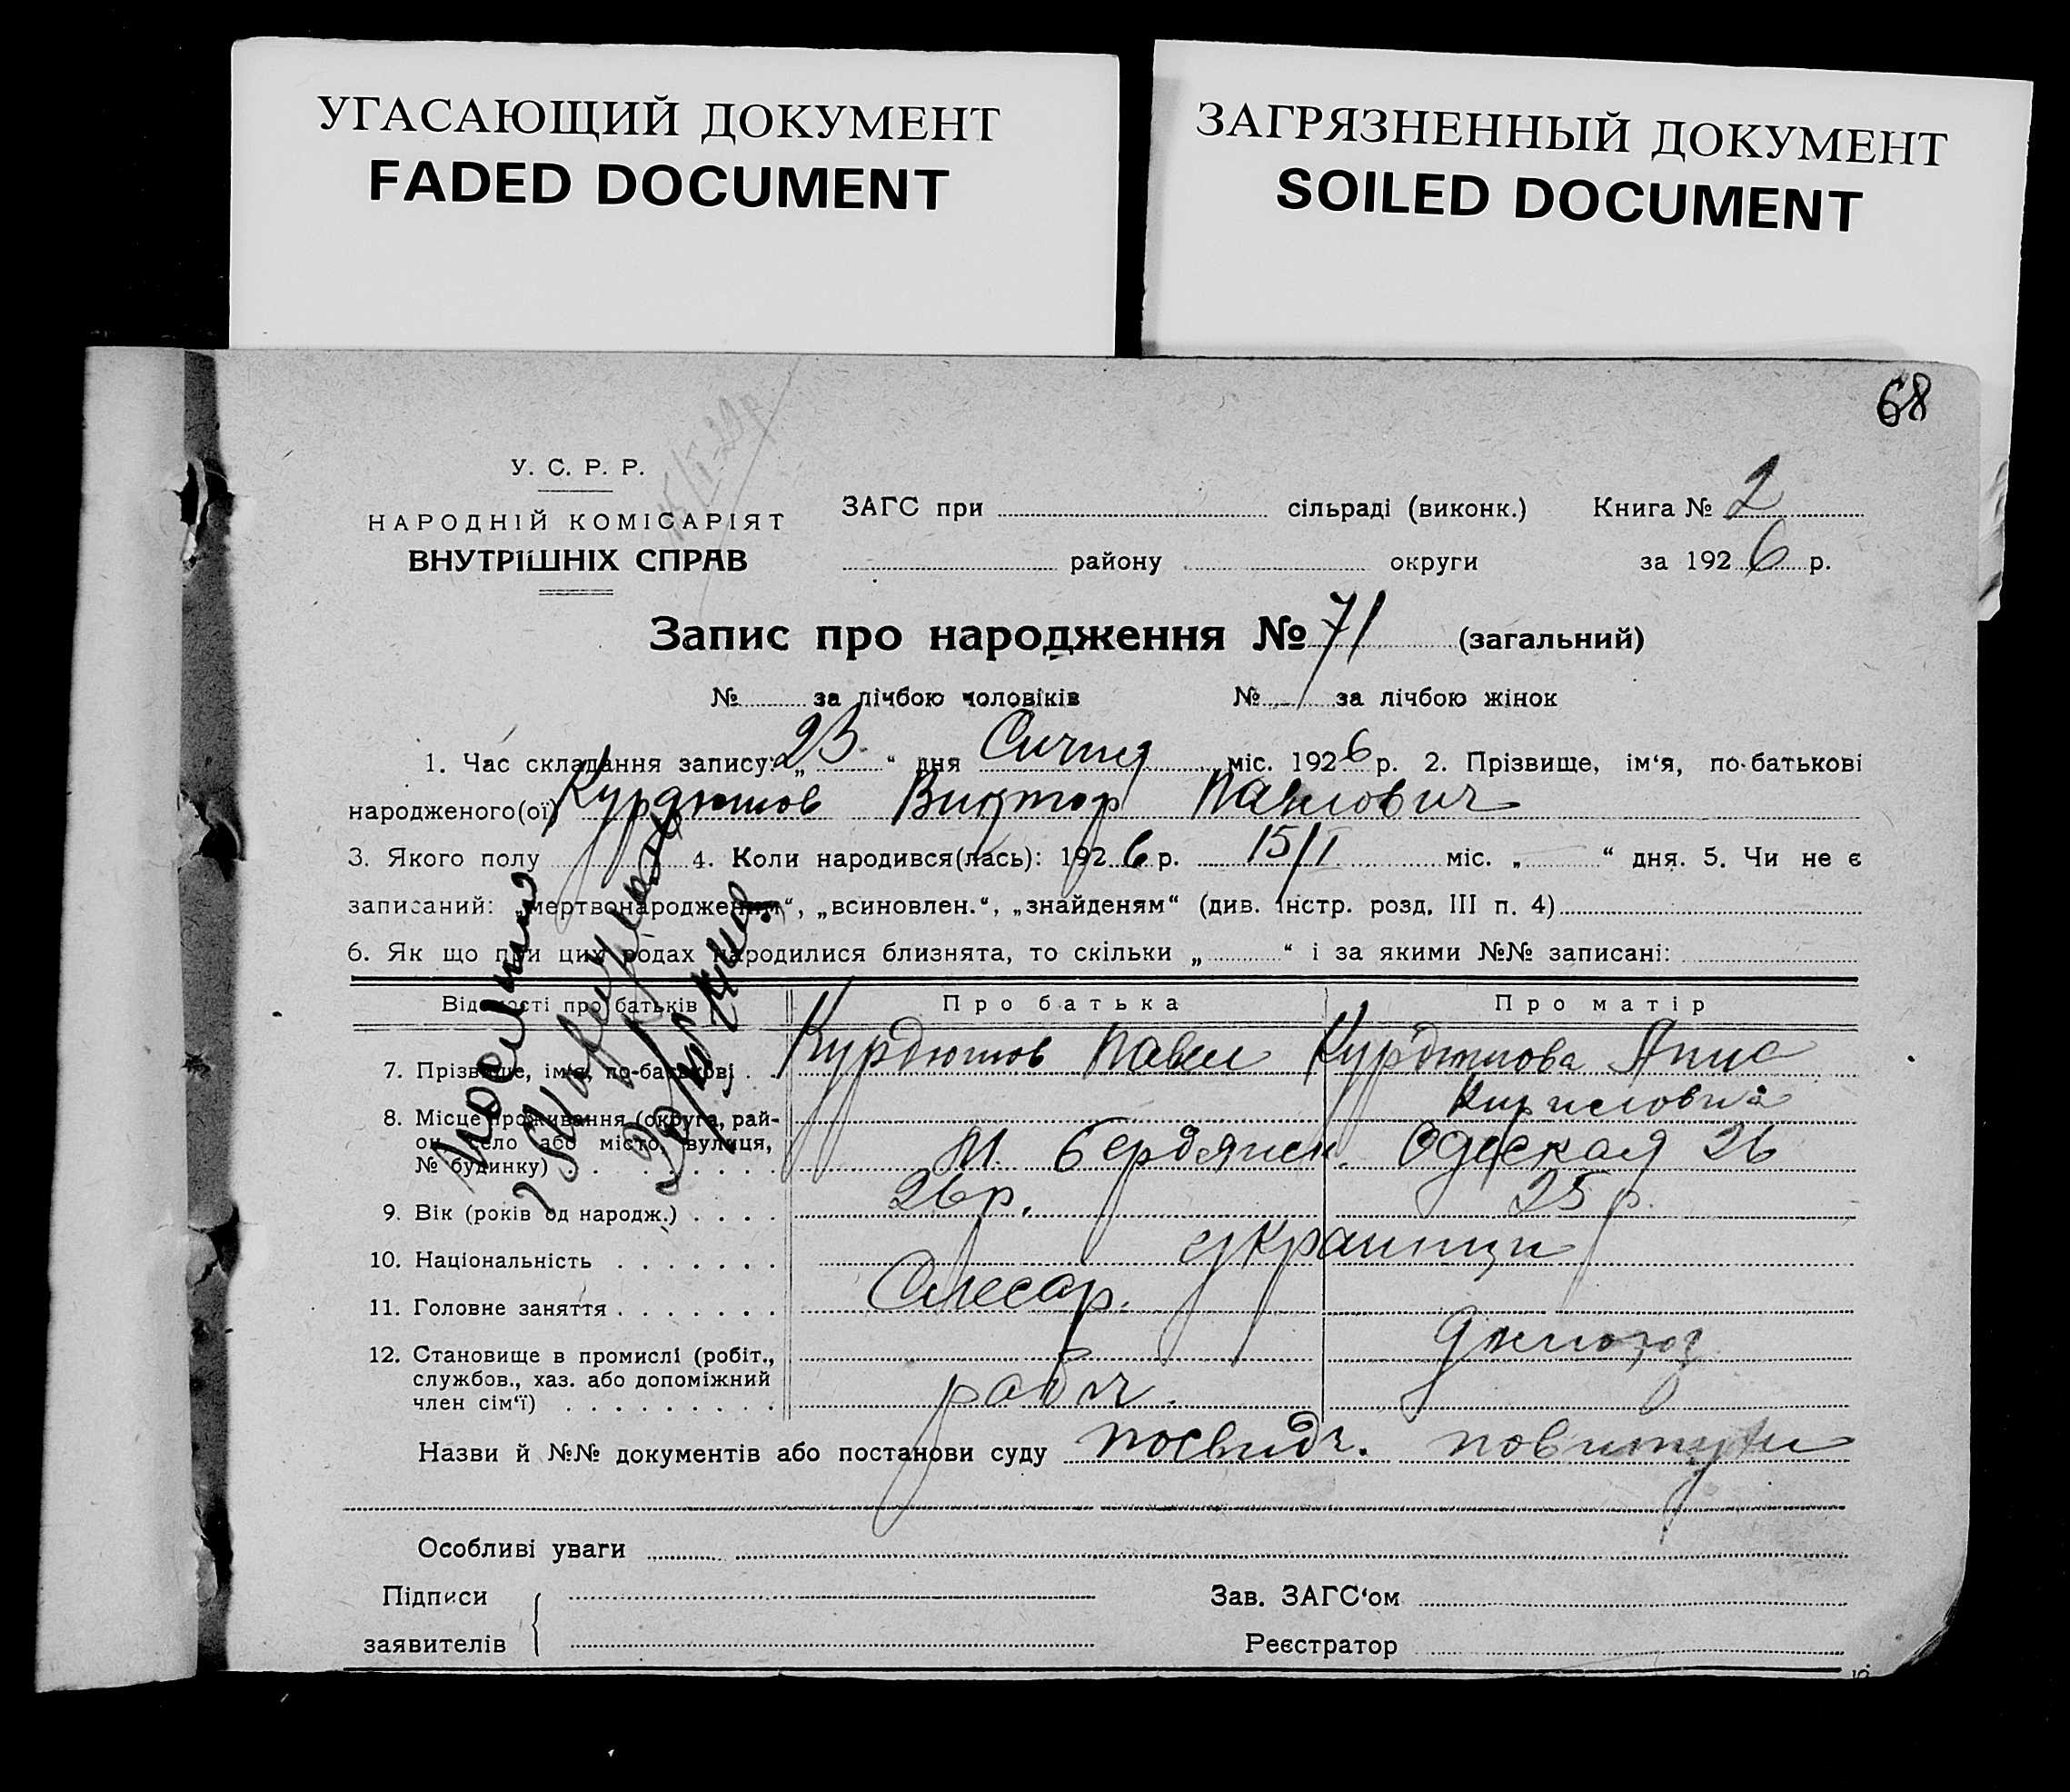 УГАСАЮЩИЙ ДОКУМЕНТ
FADED DOCUMENT
ЗАГРЯЗНЕННЫЙ ДОКУМЕНТ
SOILED DOCUMENT
68
У. С. Р. Р.
НАРОДНІЙ КОМІСАРІЯТ
ВНУТРІШНІХ СПРАВ
ЗАГС при сільраді (виконк.) Книга № 2
району округи за 1926 р.
Запис про народження № 71 (загальний)
№ за лічбою чоловіків № за лічбою жінок
1. Час складання запису: „23“ дня Січня міс. 1926 р. 2. Прізвище, ім‘я, по-батькові
народженого(ої) Курдюмов Виктор Павлович
3. Якого полу 4. Коли народився(лась): 1926 р. 15/I міс. „ “ дня. 5. Чи не є
записаний: „мертвонародженим“, „всиновлен.“, „знайденям“ (див. інстр. розд. III п. 4)
6. Як що при цих родах народилися близнята, то скільки „ “ і за якими №№ записані:
Відомості про батьків Про батька Про матір
7. Прізвище, ім‘я, по-батькові . Курдюмов Павел Курдюмова Анна
Кириловна
8. Місце проживання (округа, рай-
он, село або місто, вулиця,
№ будинку) . . . . . . . . М. Бердянськ. Одеская 26
9. Вік (років од народж.) . . . . 26 р. 25 р.
10. Національність . . . . . . . украинци
11. Головне заняття . . . . . . . Слесар.
12. Становище в промислі (робіт.,
службов., хаз. або допоміжний
член сім‘ї) . . . . . . . . . робіт.
Назви й №№ документів або постанови суду посвидч. повитухи
Особливі уваги
Підписи
заявителів
Зав. ЗАГС‘ом
Реєстратор